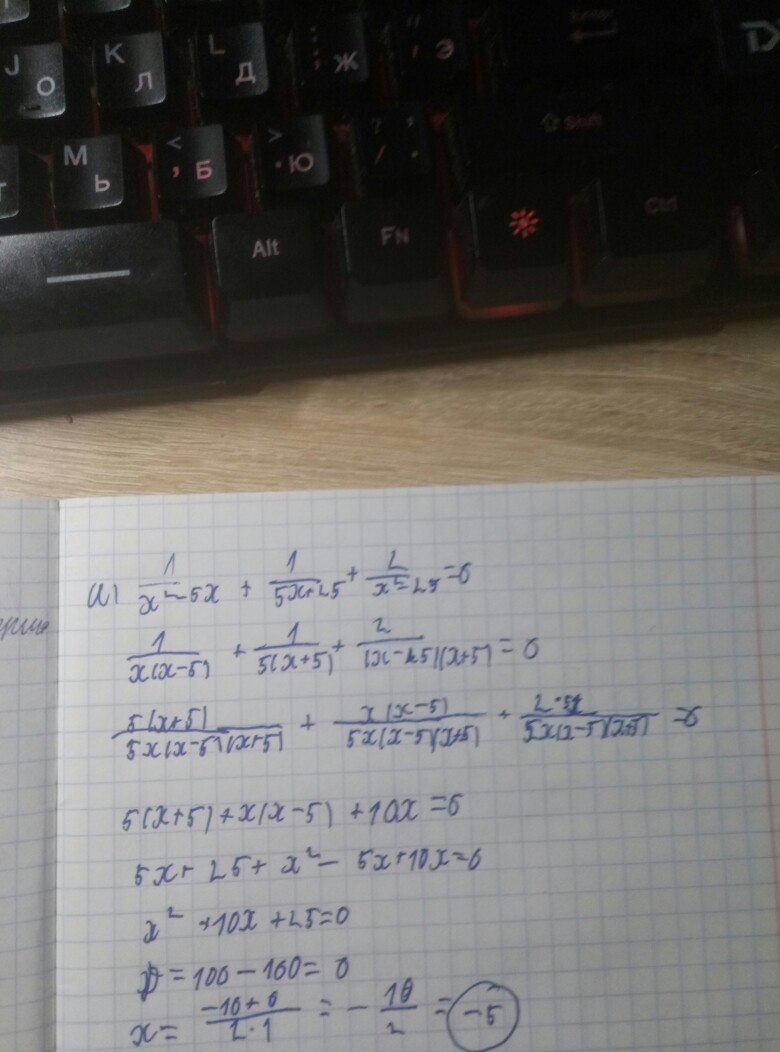 J О K Л L Д : ; Ж " ' Э Enter
М Ь < , Б > . Ю ? / , . Shift
Alt FN Ctrl
а) 1/(x²-5x) + 1/(5x+25) + 2/(x²-25) = 0
1/(x(x-5)) + 1/(5(x+5)) + 2/((x-5)(x+5)) = 0
5(x+5)/(5x(x-5)(x+5)) + x(x-5)/(5x(x-5)(x+5)) + 2·5x/(5x(x-5)(x+5)) = 0
5(x+5)+x(x-5)+10x=0
5x+25+x²-5x+10x=0
x²+10x+25=0
D=100-100=0
x= (-10+0)/(2·1) = -10/2 = -5